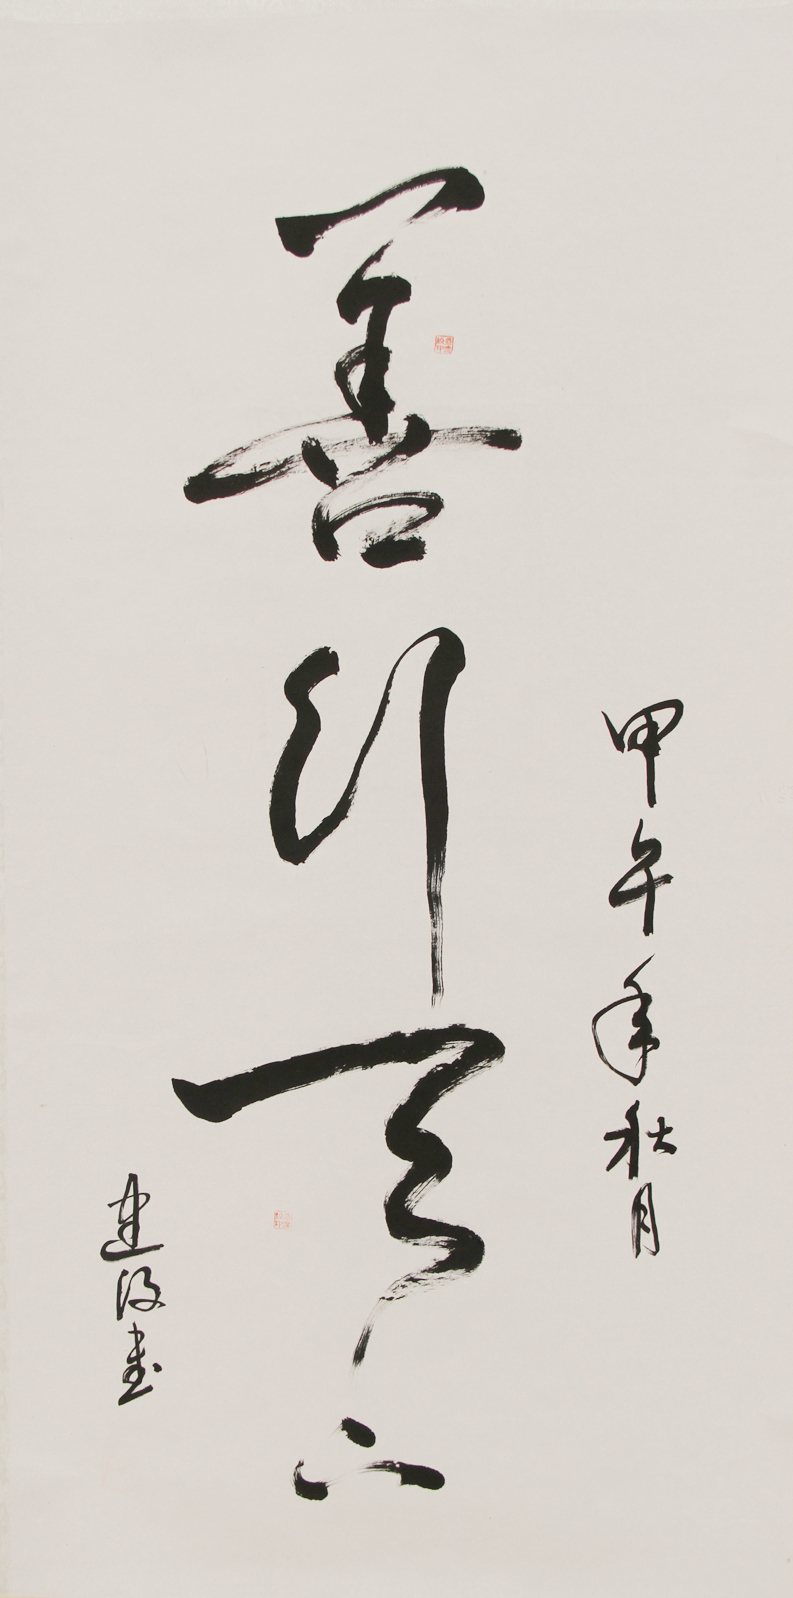 善行天下
甲午年秋月
建设书